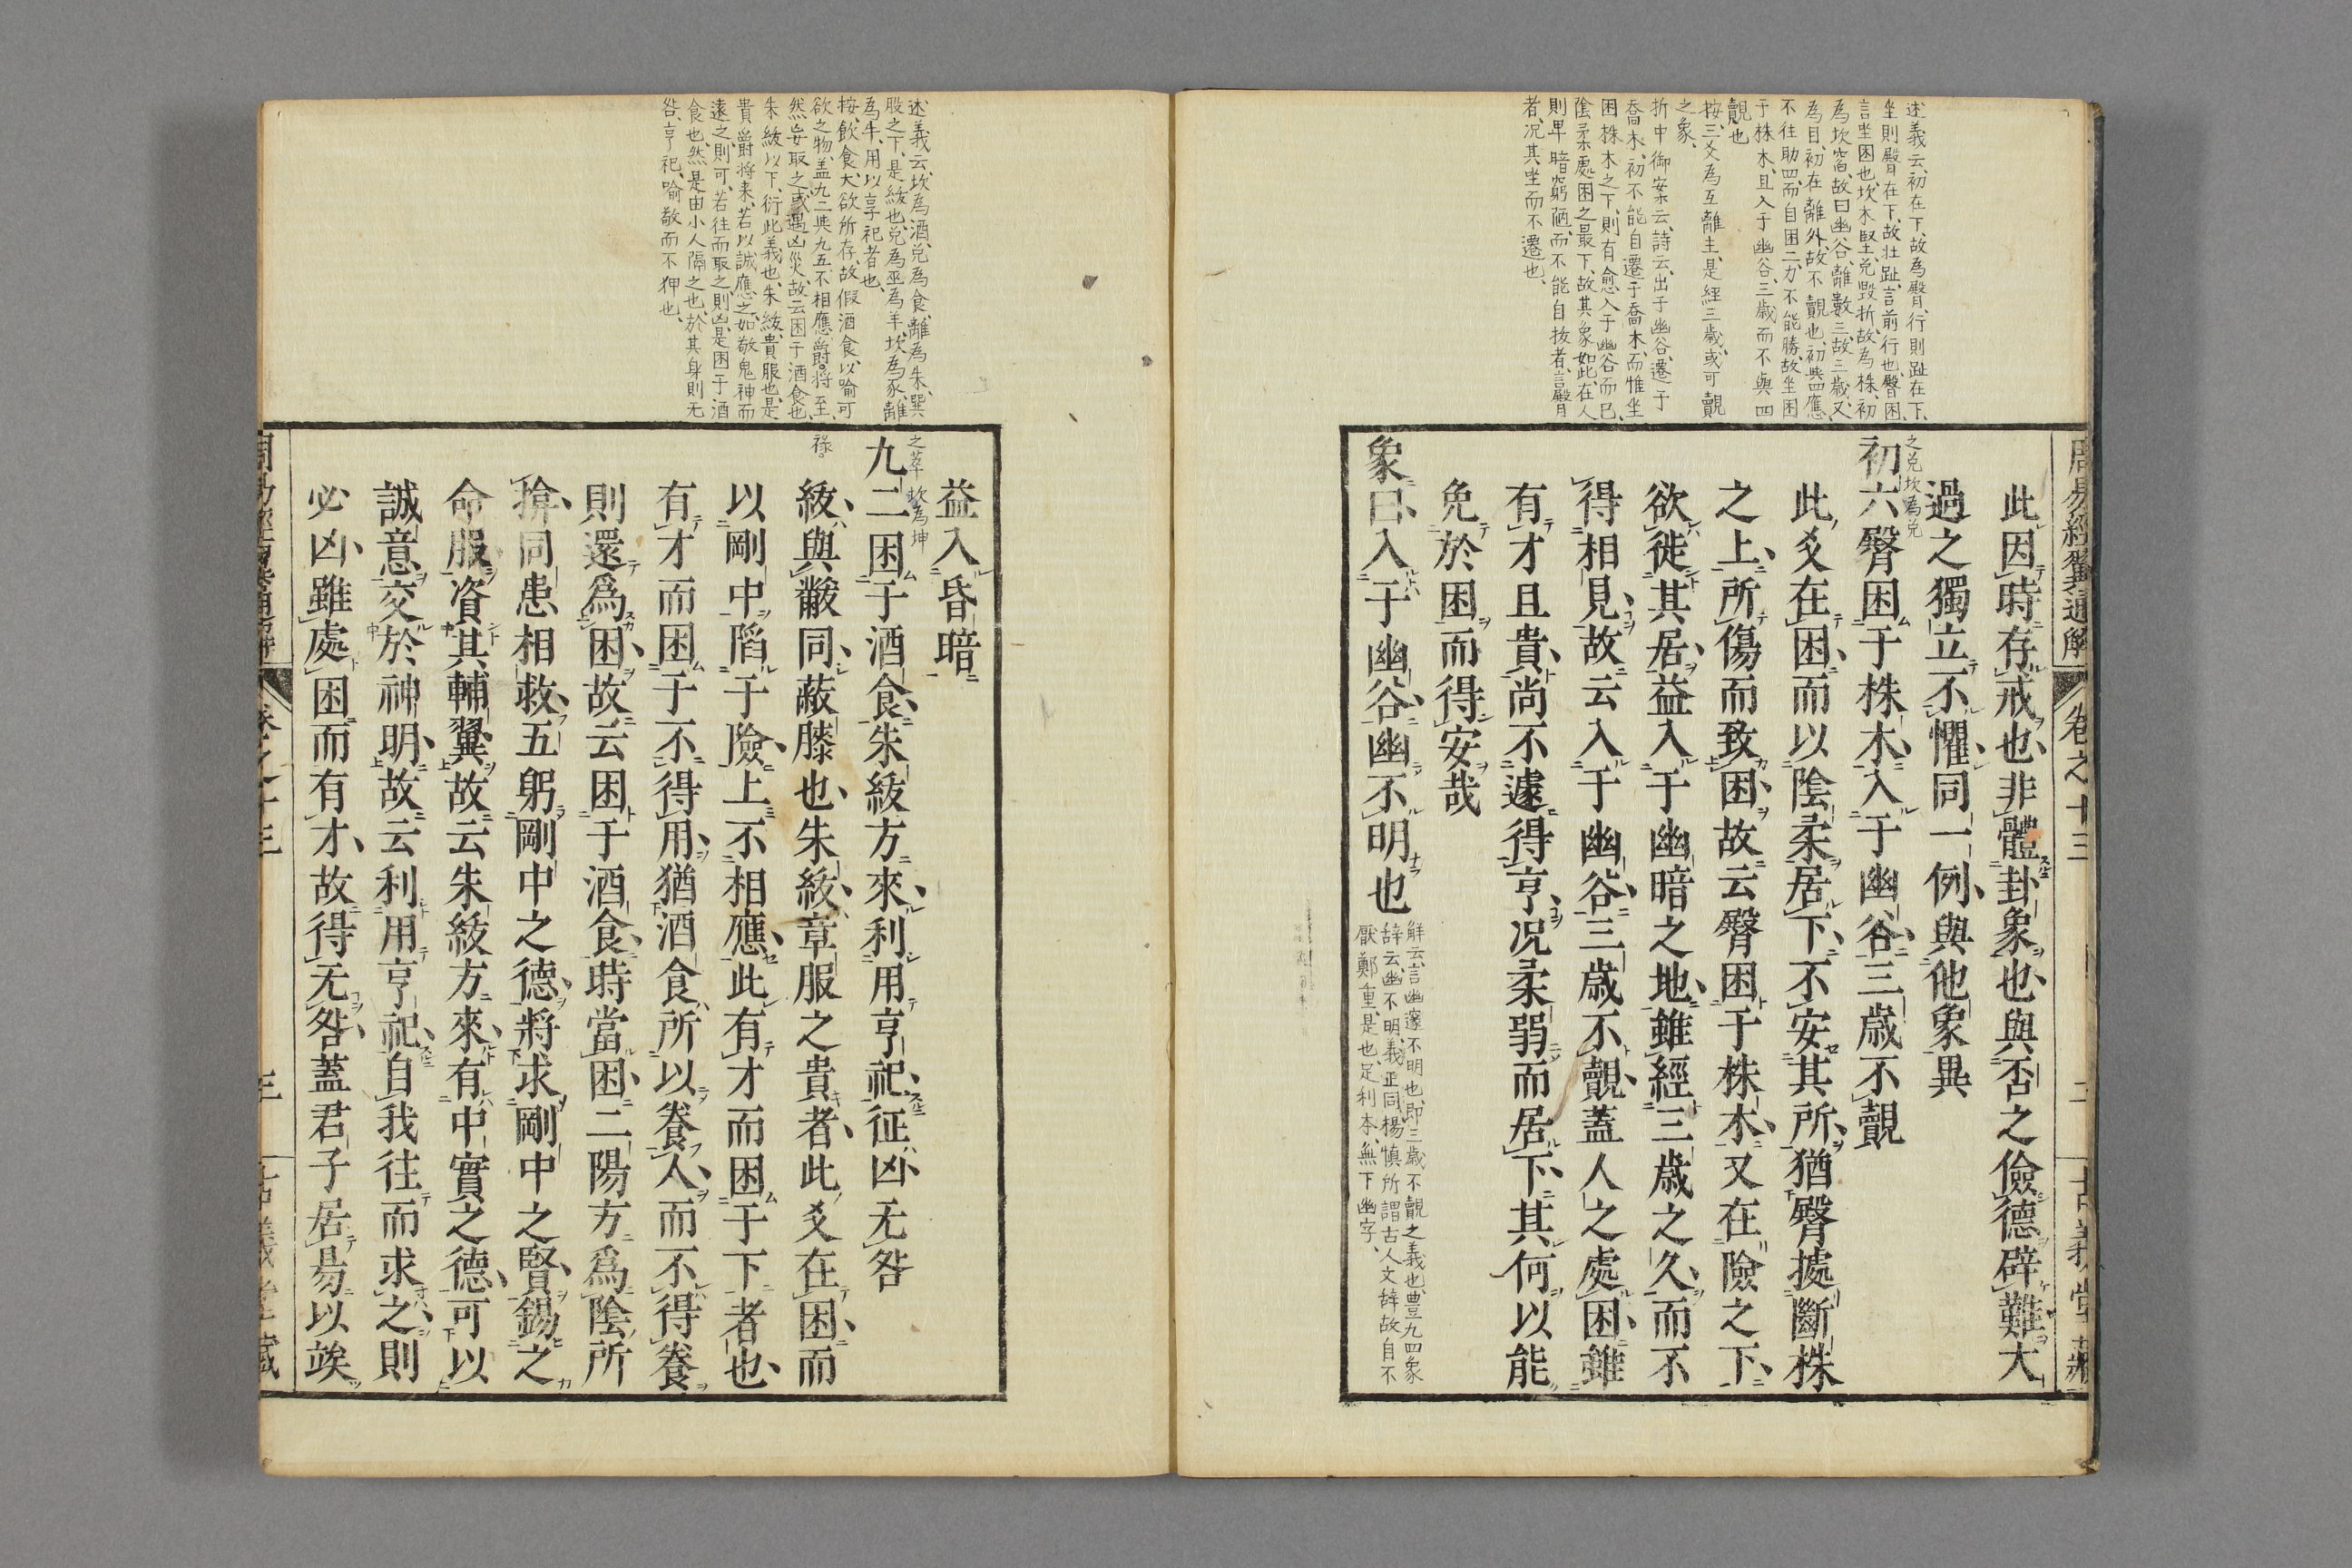 周易經翼通解
卷之十三
二
古義堂藏
述義云、初在下、故為臀、行則趾在下、
坐則臀在下、故壮趾、言前行也、臀困、
言坐困也、坎木堅、兌毀折、故為株、初
為坎窞、故曰幽谷、離數三、故三歳、又
為目、初在離外、故不覿也、初與四應、
不往助四、而自困二、力不能勝、故坐困
于株木、且入于幽谷、三歳而不與四
覿也
按、三爻為互離主、是經三歳或可覿
之象、
折中御案云、詩云、出于幽谷、遷于
喬木、初不能自遷于喬木、而惟坐
困株木之下、則有愈入于幽谷而已、
陰柔處困之最下、故其象如此、在人
則卑暗窮陋、而不能自抜者、言臀
者、况其坐而不遷也、
此因時存戒也、非體卦象也、與否之儉德辟難大
過之獨立不懼同一例、與他象異
之兌 坎為兌
初六臀困于株木、入于幽谷、三歳不覿
此爻在困、而以陰柔居下、不安其所、猶臀據斷株
之上、所傷而致困、故云臀困于株木、又在險之下、
欲徙其居、益入于幽暗之地、雖經三歳之久、而不
得相見、故云入于幽谷、三歳不覿、蓋人之處困、雖
有才且貴、尚不遽得亨、况柔弱而居下、其何以能
免於困而得安哉
象曰、入于幽谷、幽不明也
解云、言幽邃不明也、即三歳不覿之義也、豊九四象
辞云、幽不明、義正同、楊慎所謂古人文辞、故自不
厭鄭重、是也、足利本、無下幽字、
述義云、坎為酒、兌為食、離為朱、巽
股之下、是紱也、兌為巫為羊、坎為豕、離
為牛、用以享祀者也、
按、飲食大欲所存、故假酒食、以喻可
欲之物、盖九二與九五不相應、爵將至、
然妄取之、或遇凶災、故云困于酒食也、
朱紱以下、衍此義也、朱紱、貴服也、是
貴爵将来、若以誠應之、如敬鬼神而
遠之、則可、若往而取之、則凶、是困于酒
食也、然是由小人隔之也、於其身則无
咎、亨祀、喻敬而不狎也、
益入昏暗
之萃 坎為坤
九二困于酒食、朱紱方來、利用亨祀、征凶、无咎
祿。
紱、與韍同、蔽膝也、朱紱、章服之貴者、此爻在困、而
以剛中陷于險、上不相應、此有才而困于下者也、
有才而困于不得用、猶酒食所以養人、而不得養
則還爲困、故云困于酒食、時當困、二陽方爲陰所
揜、同患相救、五躬剛中之德、將求剛中之賢、錫之
命服、資其輔翼、故云朱紱方來、有中實之德、可以
誠意交於神明、故云利用亨祀、自我往而求之、則
必凶、雖處困而有才、故得无咎、蓋君子居易以竢
周易經翼通解
卷之十三
三
古義堂藏